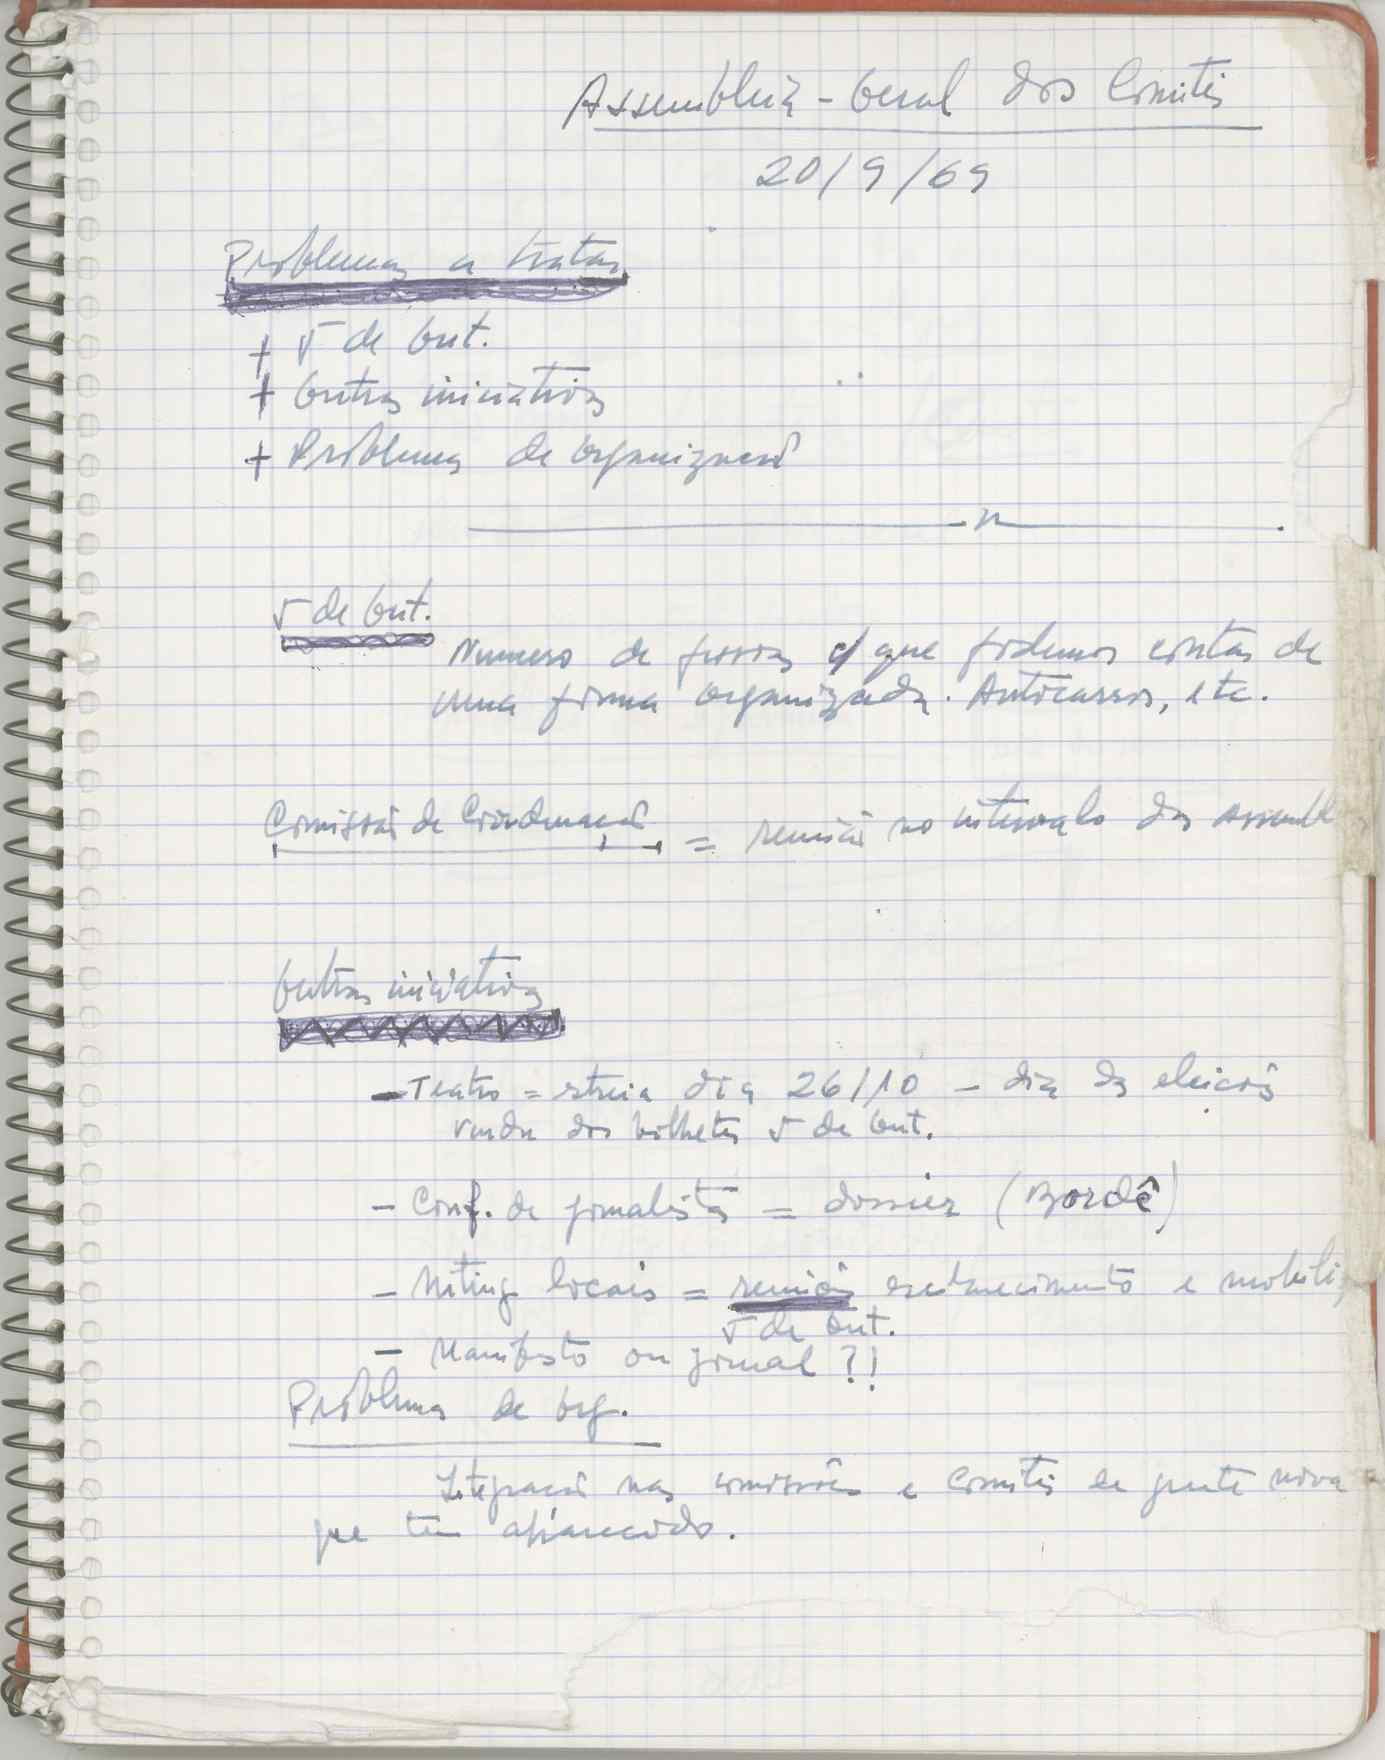 Assembleia-Geral dos Comités
20/9/69
Problemas a tratar
+ 5 de Out.
+ Outras iniciativas
+ Problemas de organização
5 de Out.
Numero de pessoas c/ que podemos contar de
uma forma organizada. Autocarros, etc.
Comissão de Coordenação = reunião no intervalo das Assembl
Outras iniciativas
- Teatro = estreia dia 26/10 - dia das eleições
venda dos bilhetes 5 de Out.
- Conf. de jornalistas = dossier (Bordê)
- Miting locais = reunião esclarecimento e mobiliz
5 de Out.
- Manifesto ou jornal ?!
Problemas de org.
Integração nas comissões e Comités de gente nova
que tem aparecido.